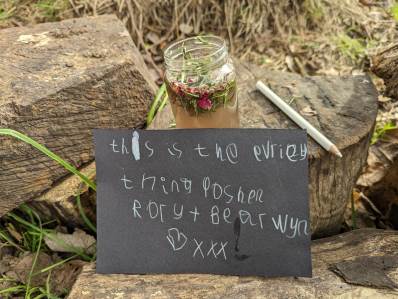 this is the evriey
thing Posher
Rory + Bear wyn
♡ xxx !